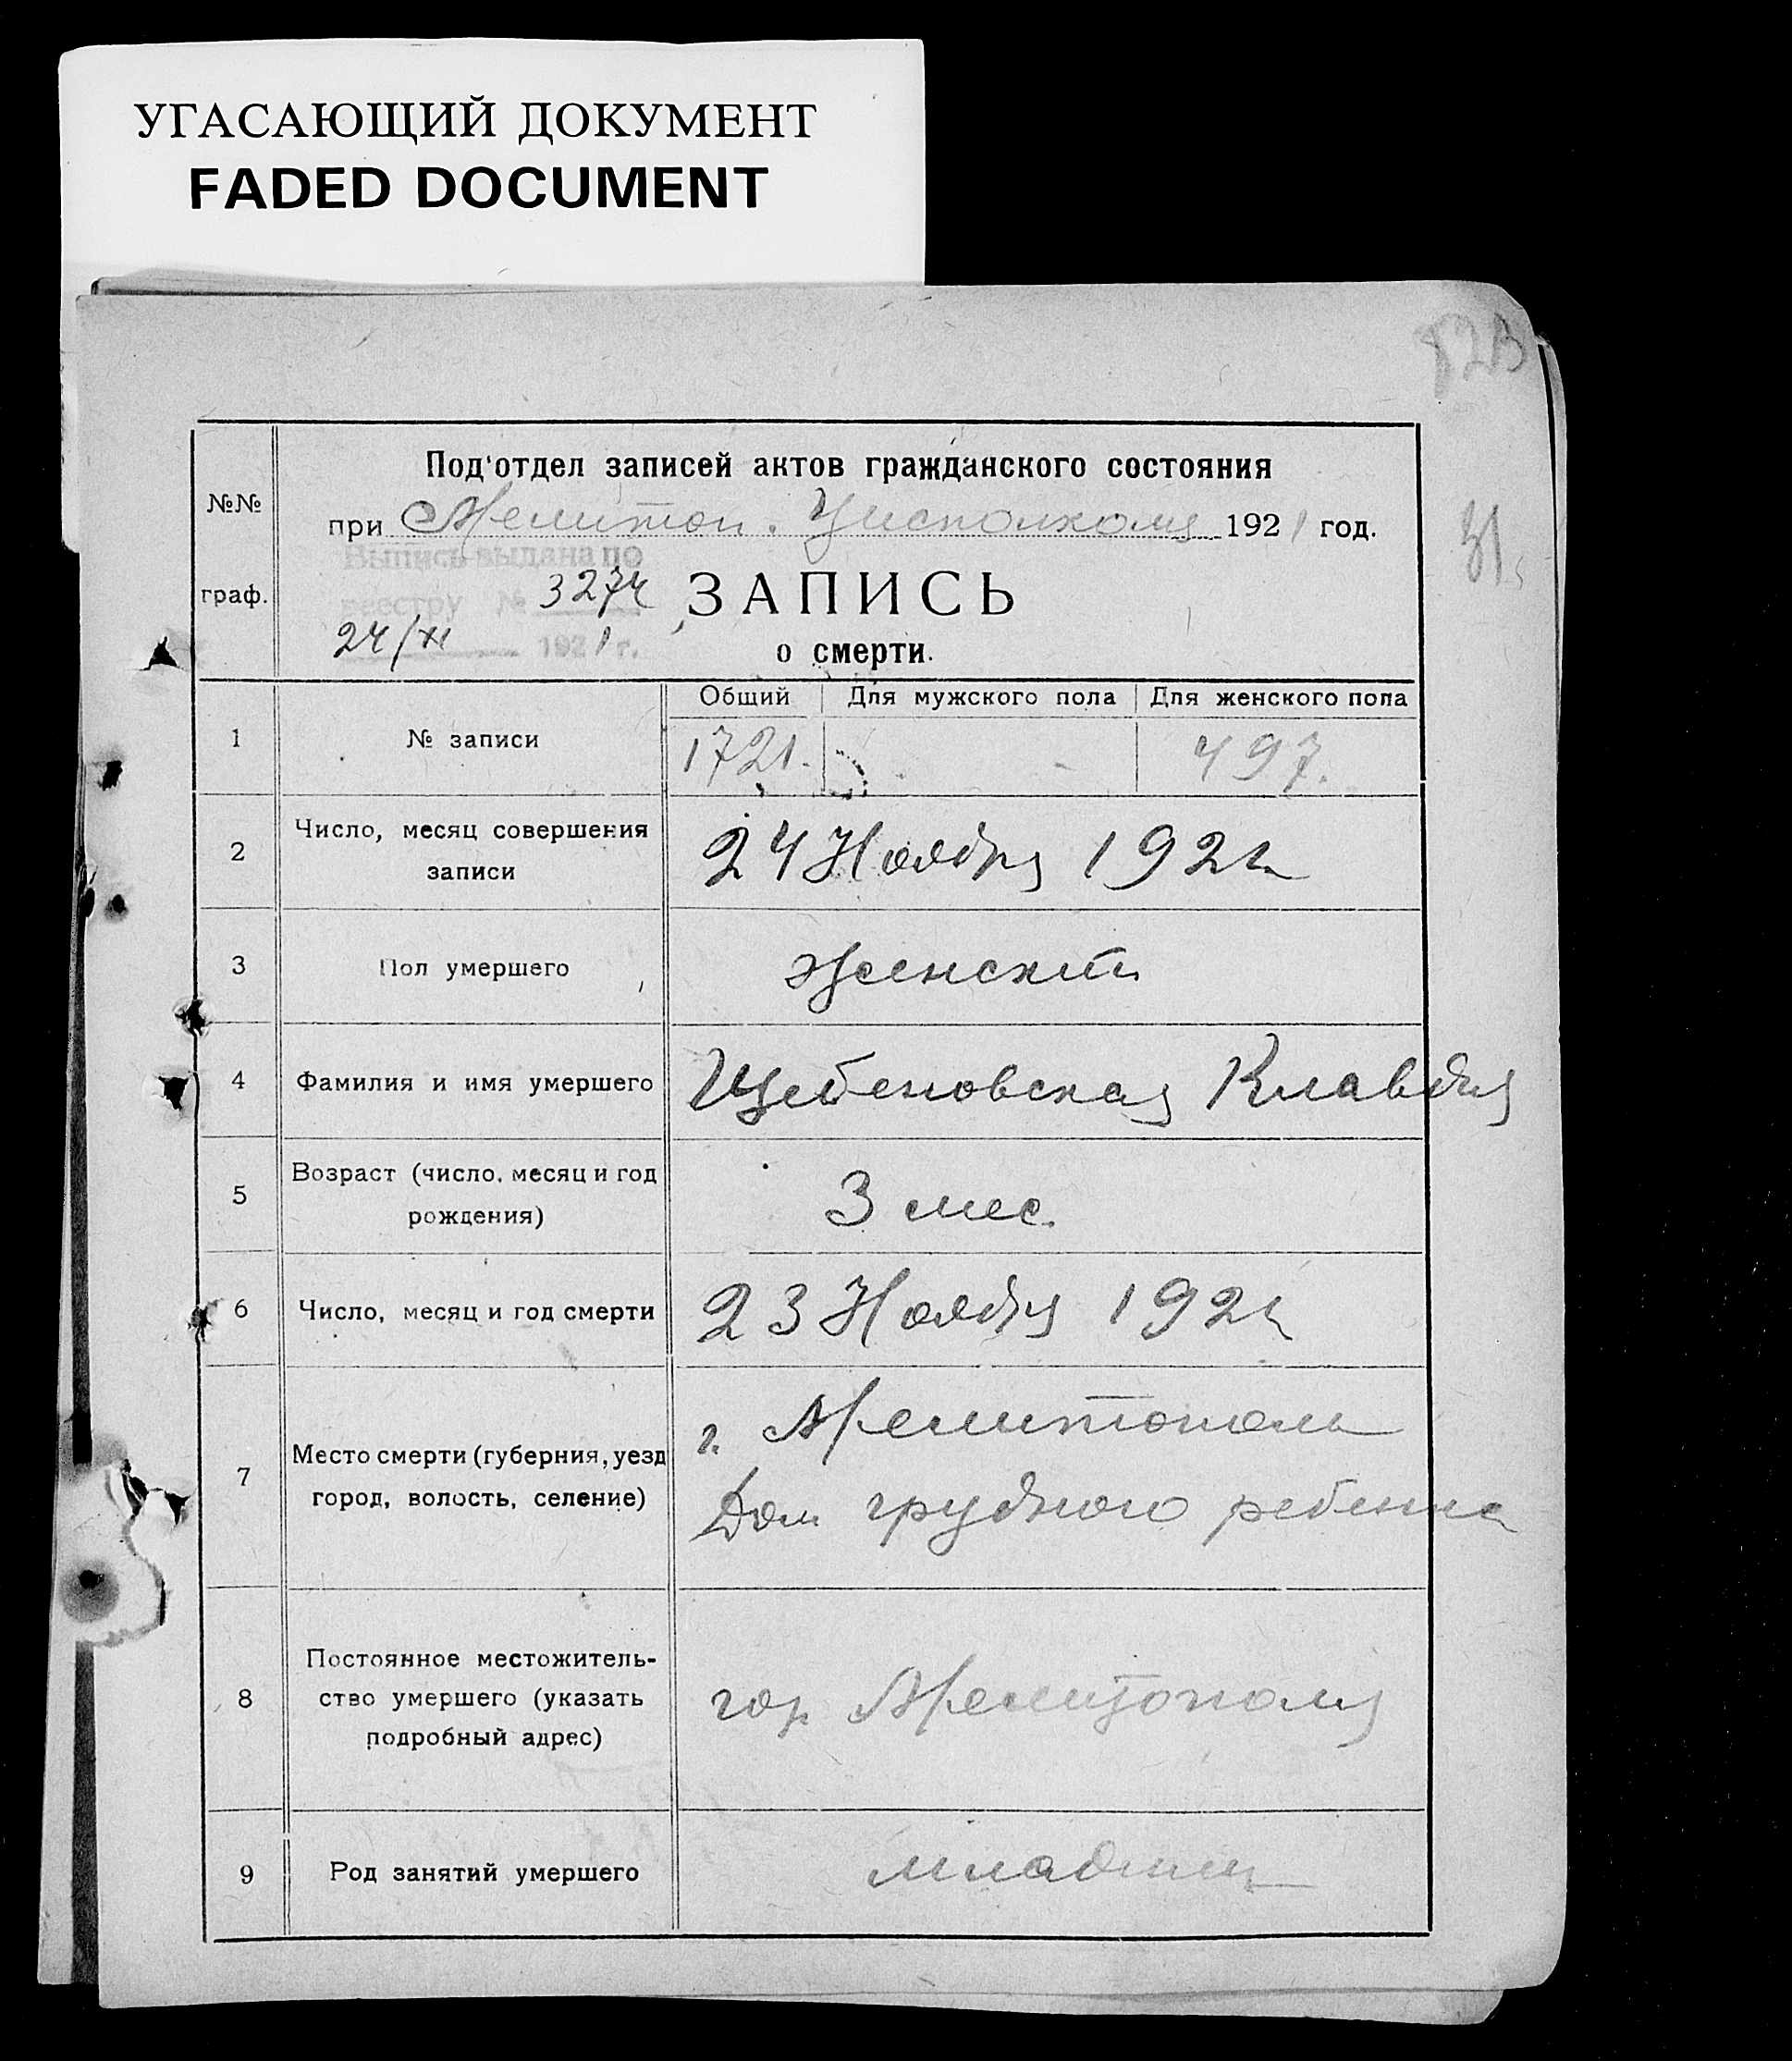 УГАСАЮЩИЙ ДОКУМЕНТ
FADED DOCUMENT
82В
31
№№
граф.
Под'отдел записей актов гражданского состояния
при Мелитоп. Уисполкому 1921 год.
Выпись выдана по
реестру № 3274
24/XI 1921 г.
ЗАПИСЬ
о смерти.
Общий Для мужского пола Для женского пола
1 № записи 1721. 497.
2 Число, месяц совершения
записи
24 Ноября 1921
3 Пол умершего Женский
4 Фамилия и имя умершего Щебеновская Клавдия
5 Возраст (число, месяц и год
рождения)
3 мес.
6 Число, месяц и год смерти 23 Ноября 1921
7 Место смерти (губерния, уезд
город, волость, селение)
г. Мелитополь
Дом грудного ребенка
8 Постоянное местожитель-
ство умершего (указать
подробный адрес)
гор Мелитополя
9 Род занятий умершего младенец